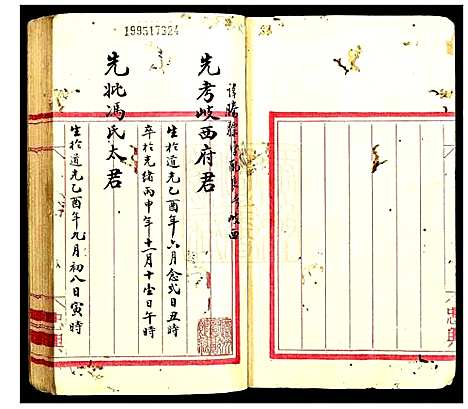 199517324
諱勝
號岐西
先考岐西府君
生於道光乙酉年六月念弍日丑時
卒於光緒丙申年十一月十壹日午時
先妣馮氏太君
生於道光乙酉年九月初八日寅時
忠興